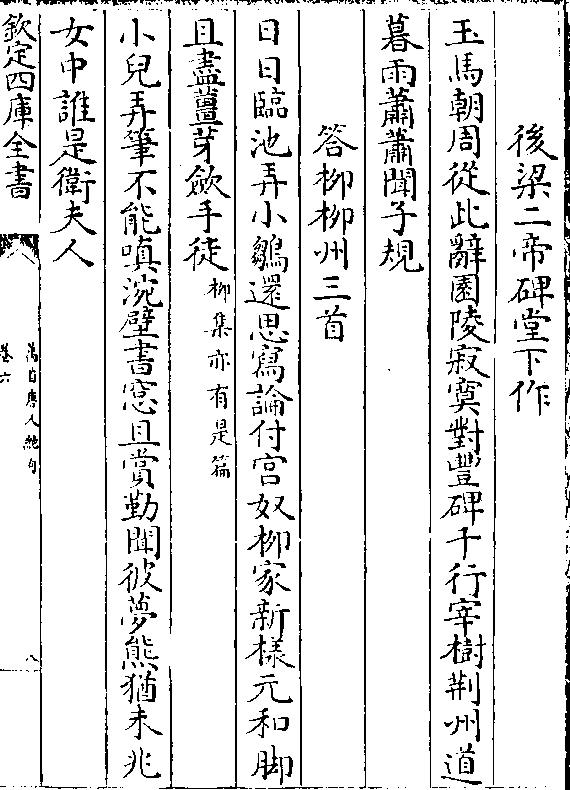 後梁二帝碑堂下作
玉馬朝周從此辭園陵寂寞對豐碑千行宰樹荆州道
暮雨蕭蕭聞子規
答柳柳州三首
日日臨池弄小雛還思寫論付宫奴柳家新樣元和脚
且盡薑芽斂手徒柳集亦有是篇
小兒弄筆不能嗔涴壁書窓且賞勤聞彼夢熊猶未兆
女中誰是衛夫人
欽定四庫全書
萬首唐人絶句
卷六
八